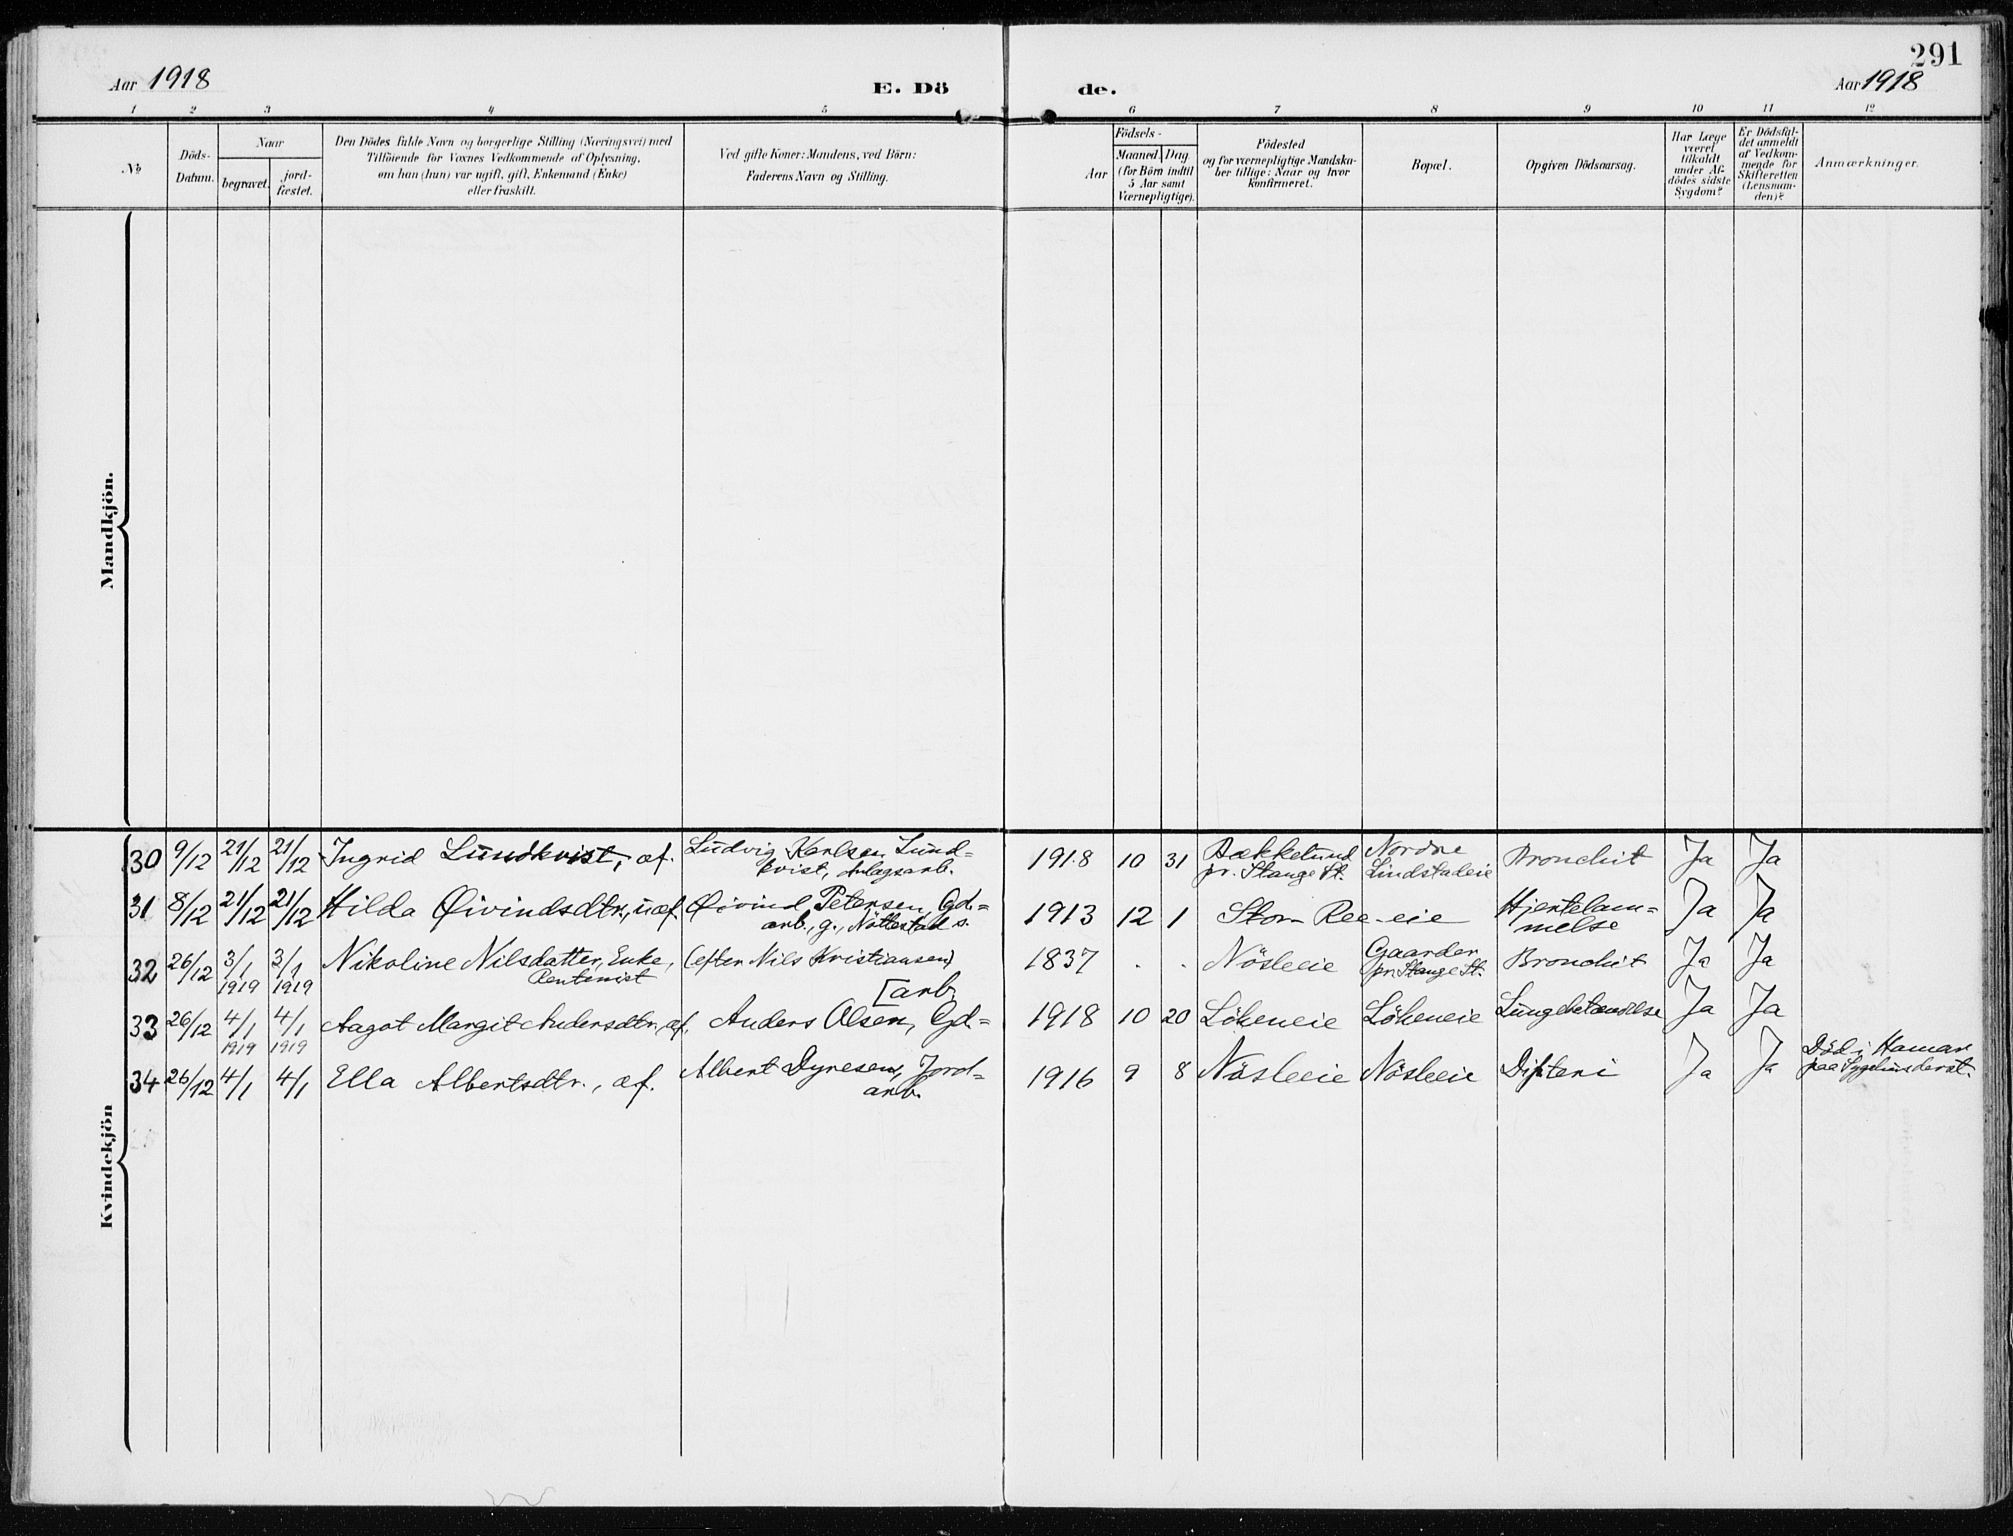 291
Aar 1918
E. Dö
de.
Aar 1918
1 2 3 4 5 6 7 8 9 10 11 12
No
Döds-
Datum.
Naar
begravet.
jord-
fæstet.
Den Dödes fulde Navn og borgerlige Stilling (Næringsvei) med
Tilföiende for Voxnes Vedkommende af Oplysning,
om han (hun) var ugift, gift, Enkemand (Enke)
eller fraskilt.
Ved gifte Koner: Mandens, ved Börn:
Faderens Navn og Stilling.
Födsels-
Aar
Maaned. Dag
(for Börn indtil
5 Aar samt
Værnepligtige).
Födested
og for værnepligtige Mandska-
ber tillige: Naar og hvor
konfirmeret.
Bopæl.
Opgiven Dödsaarsag.
Har Læge
været
tilkaldt
under Af-
dödes sidste
Sygdom?
Er Dödsfal-
det anmeldt
af Vedkom-
mende for
Skifteretten
(Lensman-
den)?
Anmærkninger.
Mandkjön.
Kvindekjön
30 9/12 21/12 21/12 Ingrid Lundkvist, af. Ludvig Karlsen Lund-
kvist, Anlagsarb.
1918 10 31 Bækkelund
pr. Stange St.
Nordre
Lindstadeie
Bronchit Ja Ja
31 8/12 21/12 21/12 Hilda Øivindsdtr., uæf. Øivind Petersen, Gd-
arb., g., Nöttestad s.
1913 12 1 Store Ree-eie
Hjertelam-
melse
Ja Ja
32 26/12 3/1 1919 3/1 1919 Nikoline Nilsdatter, Enke,
Rentenist
(efter Nils Kristiansen)
1837 . . Nösleeie
Gaarder
pr. Stange St.
Bronchit Ja Ja
33 26/12 4/1 1919 4/1 1919 Aagot Margit Andersdtr., æf. Anders Olsen, Gd-
[arb.
1918 10 20 Lökeneie Lökeneie Lungebetændelse Ja Ja
34 26/12 4/1 4/1 Ella Albertsdtr., æf. Albert Dyresen, Jord-
arb.
1916 9 8 Nösleeie Nösleeie Difteri Ja Ja
Död i Hamar
paa